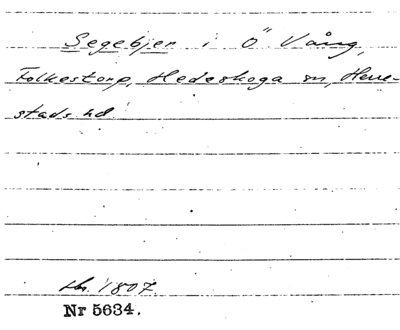 Segebjer i Ö Vång,
Folkestorp, Hedeskoga sn, Herre-
stads hd.
Hs. 1807.
Nr 5634.